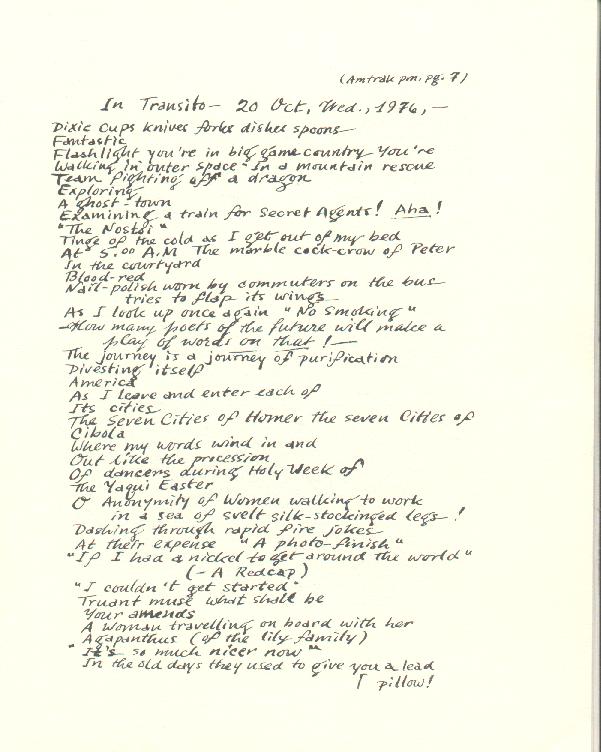 (Amtrak pm. pg. 7)
In Transito — 20 Oct, Wed., 1976, —
Dixie cups knives forks dishes spoons—
Fantastic
Flashlight you're in big game country You're
Walking in outer space In a mountain rescue
Team fighting off a dragon
Exploring
A ghost town
Examining a train for Secret Agents! Aha!
"The Nostoi"
Tinge of the cold as I get out of my bed
At 5:00 A.M The marble cock-crow of Peter
In the courtyard
Blood-red
Nail-polish worn by commuters on the bus
tries to flap its wings—
As I look up once again "No Smoking"
—How many poets of the future will make a
play of words on that!—
The journey is a journey of purification
Divesting itself
America
As I leave and enter each of
Its cities
The Seven Cities of Homer the seven Cities of
Cibola
Where my words wind in and
Out like the procession
Of dancers during Holy Week of
The Yaqui Easter
O Anonymity of Women walking to work
in a sea of svelt silk-stockinged legs!
Dashing through rapid fire jokes
At their expense "A photo-finish"
"If I had a nickel to get around the world"
(— A Redcap)
"I couldn't get started"
Truant muse what shall be
Your amends
A woman travelling on board with her
Agapanthus (of the lily family)
"It's so much nicer now"
In the old days they used to give you a lead
pillow!